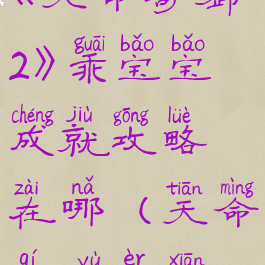 guāi bǎo bǎo
2》乖宝宝
chéng jiù gōng lüè
成就攻略
zài nǎ tiān mìng
在哪（天命
qí yù èr xiān